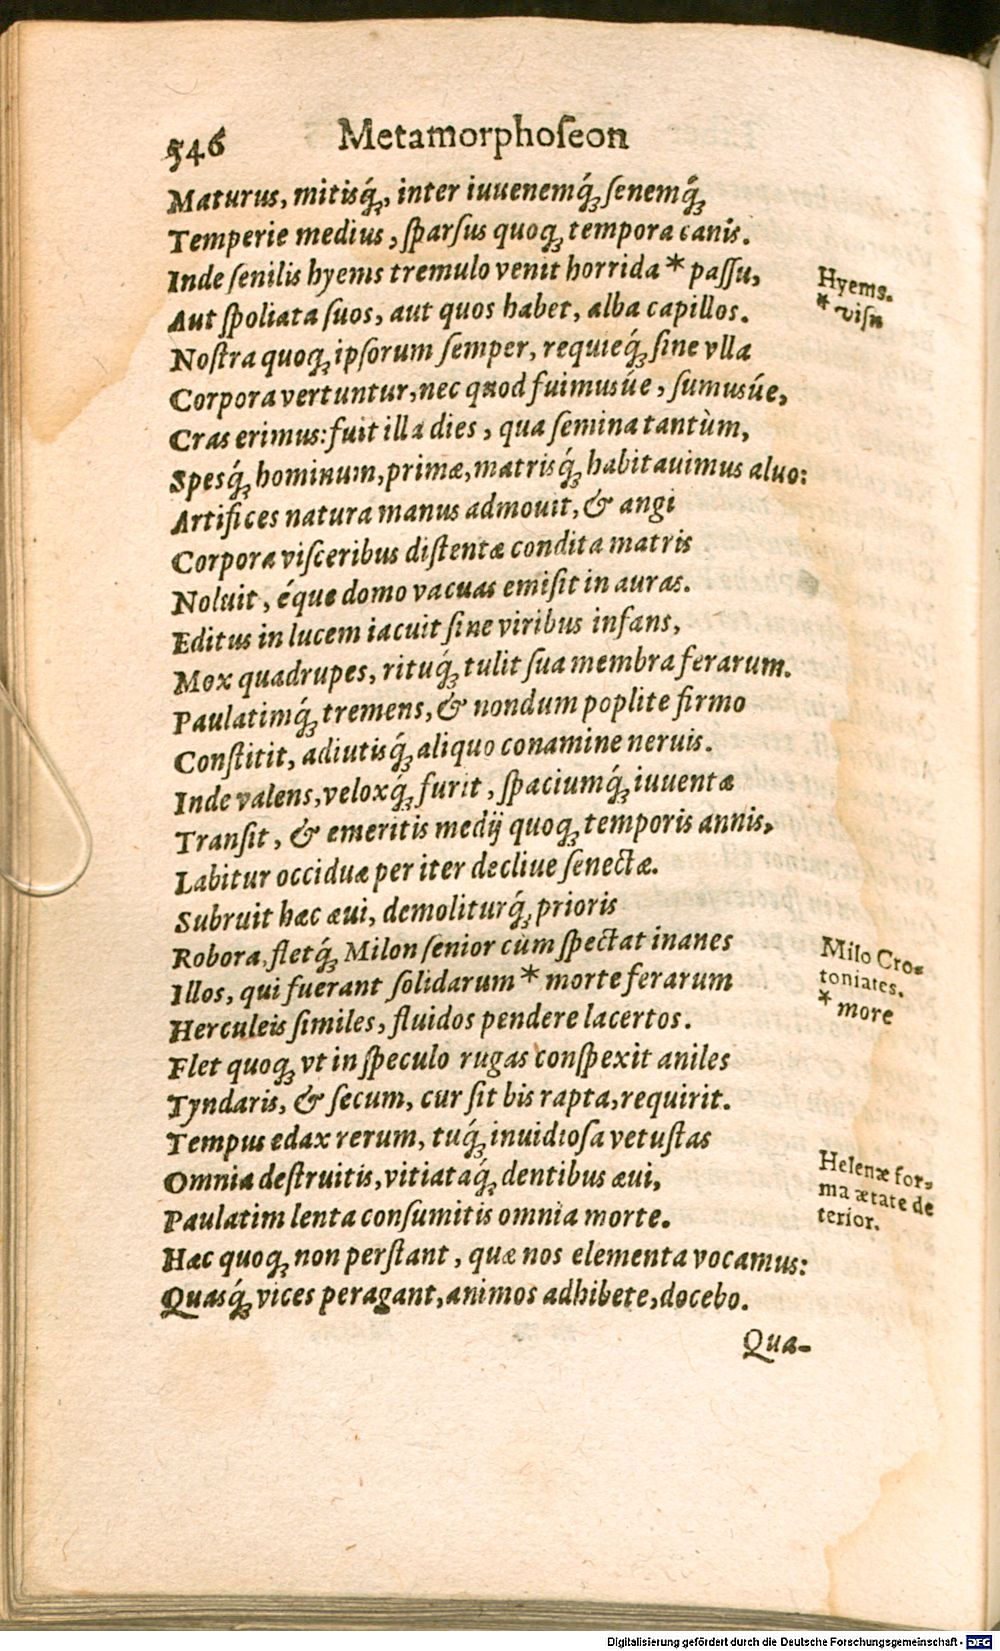 546 Metamorphoſeon
Maturus, mitisq́ꝫ, inter iuuenemq́ꝫ ſenemq́ꝫ
Temperie medius, ſparſus quoqꝫ tempora canis.
Inde ſenilis hyems tremulo venit horrida * paſſu,
Aut ſpoliata ſuos, aut quos habet, alba capillos.
Noſtra quoqꝫ ipſorum ſemper, requieq́ꝫ ſine vlla
Corpora vertuntur, nec quod fuimusúe, ſumusúe,
Cras erimus: fuit illa dies, qua ſemina tantùm,
Spesq́ꝫ hominum, primæ, matrisq́ꝫ habitauimus aluo:
Artifices natura manus admouit, & angi
Corpora viſceribus diſtentæ condita matris
Noluit, éque domo vacuas emiſit in auras.
Editus in lucem iacuit ſine viribus infans,
Mox quadrupes, rituq́ꝫ tulit ſua membra ferarum.
Paulatimq́ꝫ tremens, & nondum poplite firmo
Conſtitit, adiutisq́ꝫ aliquo conamine neruis.
Inde valens, veloxq́ꝫ furit, ſpaciumq́ꝫ iuuentæ
Tranſit, & emeritis medij quoqꝫ temporis annis,
Labitur occiduæ per iter decliue ſenectæ.
Subruit hæc æui, demoliturq́ꝫ prioris
Robora, fletq́ꝫ Milon ſenior cùm ſpectat inanes
Illos, qui fuerant ſolidarum * morte ferarum
Herculeis ſimiles, fluidos pendere lacertos.
Flet quoqꝫ vt in ſpeculo rugas conſpexit aniles
Tyndaris, & ſecum, cur ſit bis rapta, requirit.
Tempus edax rerum, tuq́ꝫ inuidioſa vetuſtas
Omnia deſtruitis, vitiataq́ꝫ dentibus æui,
Paulatim lenta conſumitis omnia morte.
Hæc quoqꝫ non perſtant, quæ nos elementa vocamus:
Quasq́ꝫ vices peragant, animos adhibete, docebo.
Qua-
Hyems.
* viſu
Milo Cro-
toniates.
* more
Helenæ for-
ma ætate de
terior.
Digitalisierung gefördert durch die Deutsche Forschungsgemeinschaft - DFG